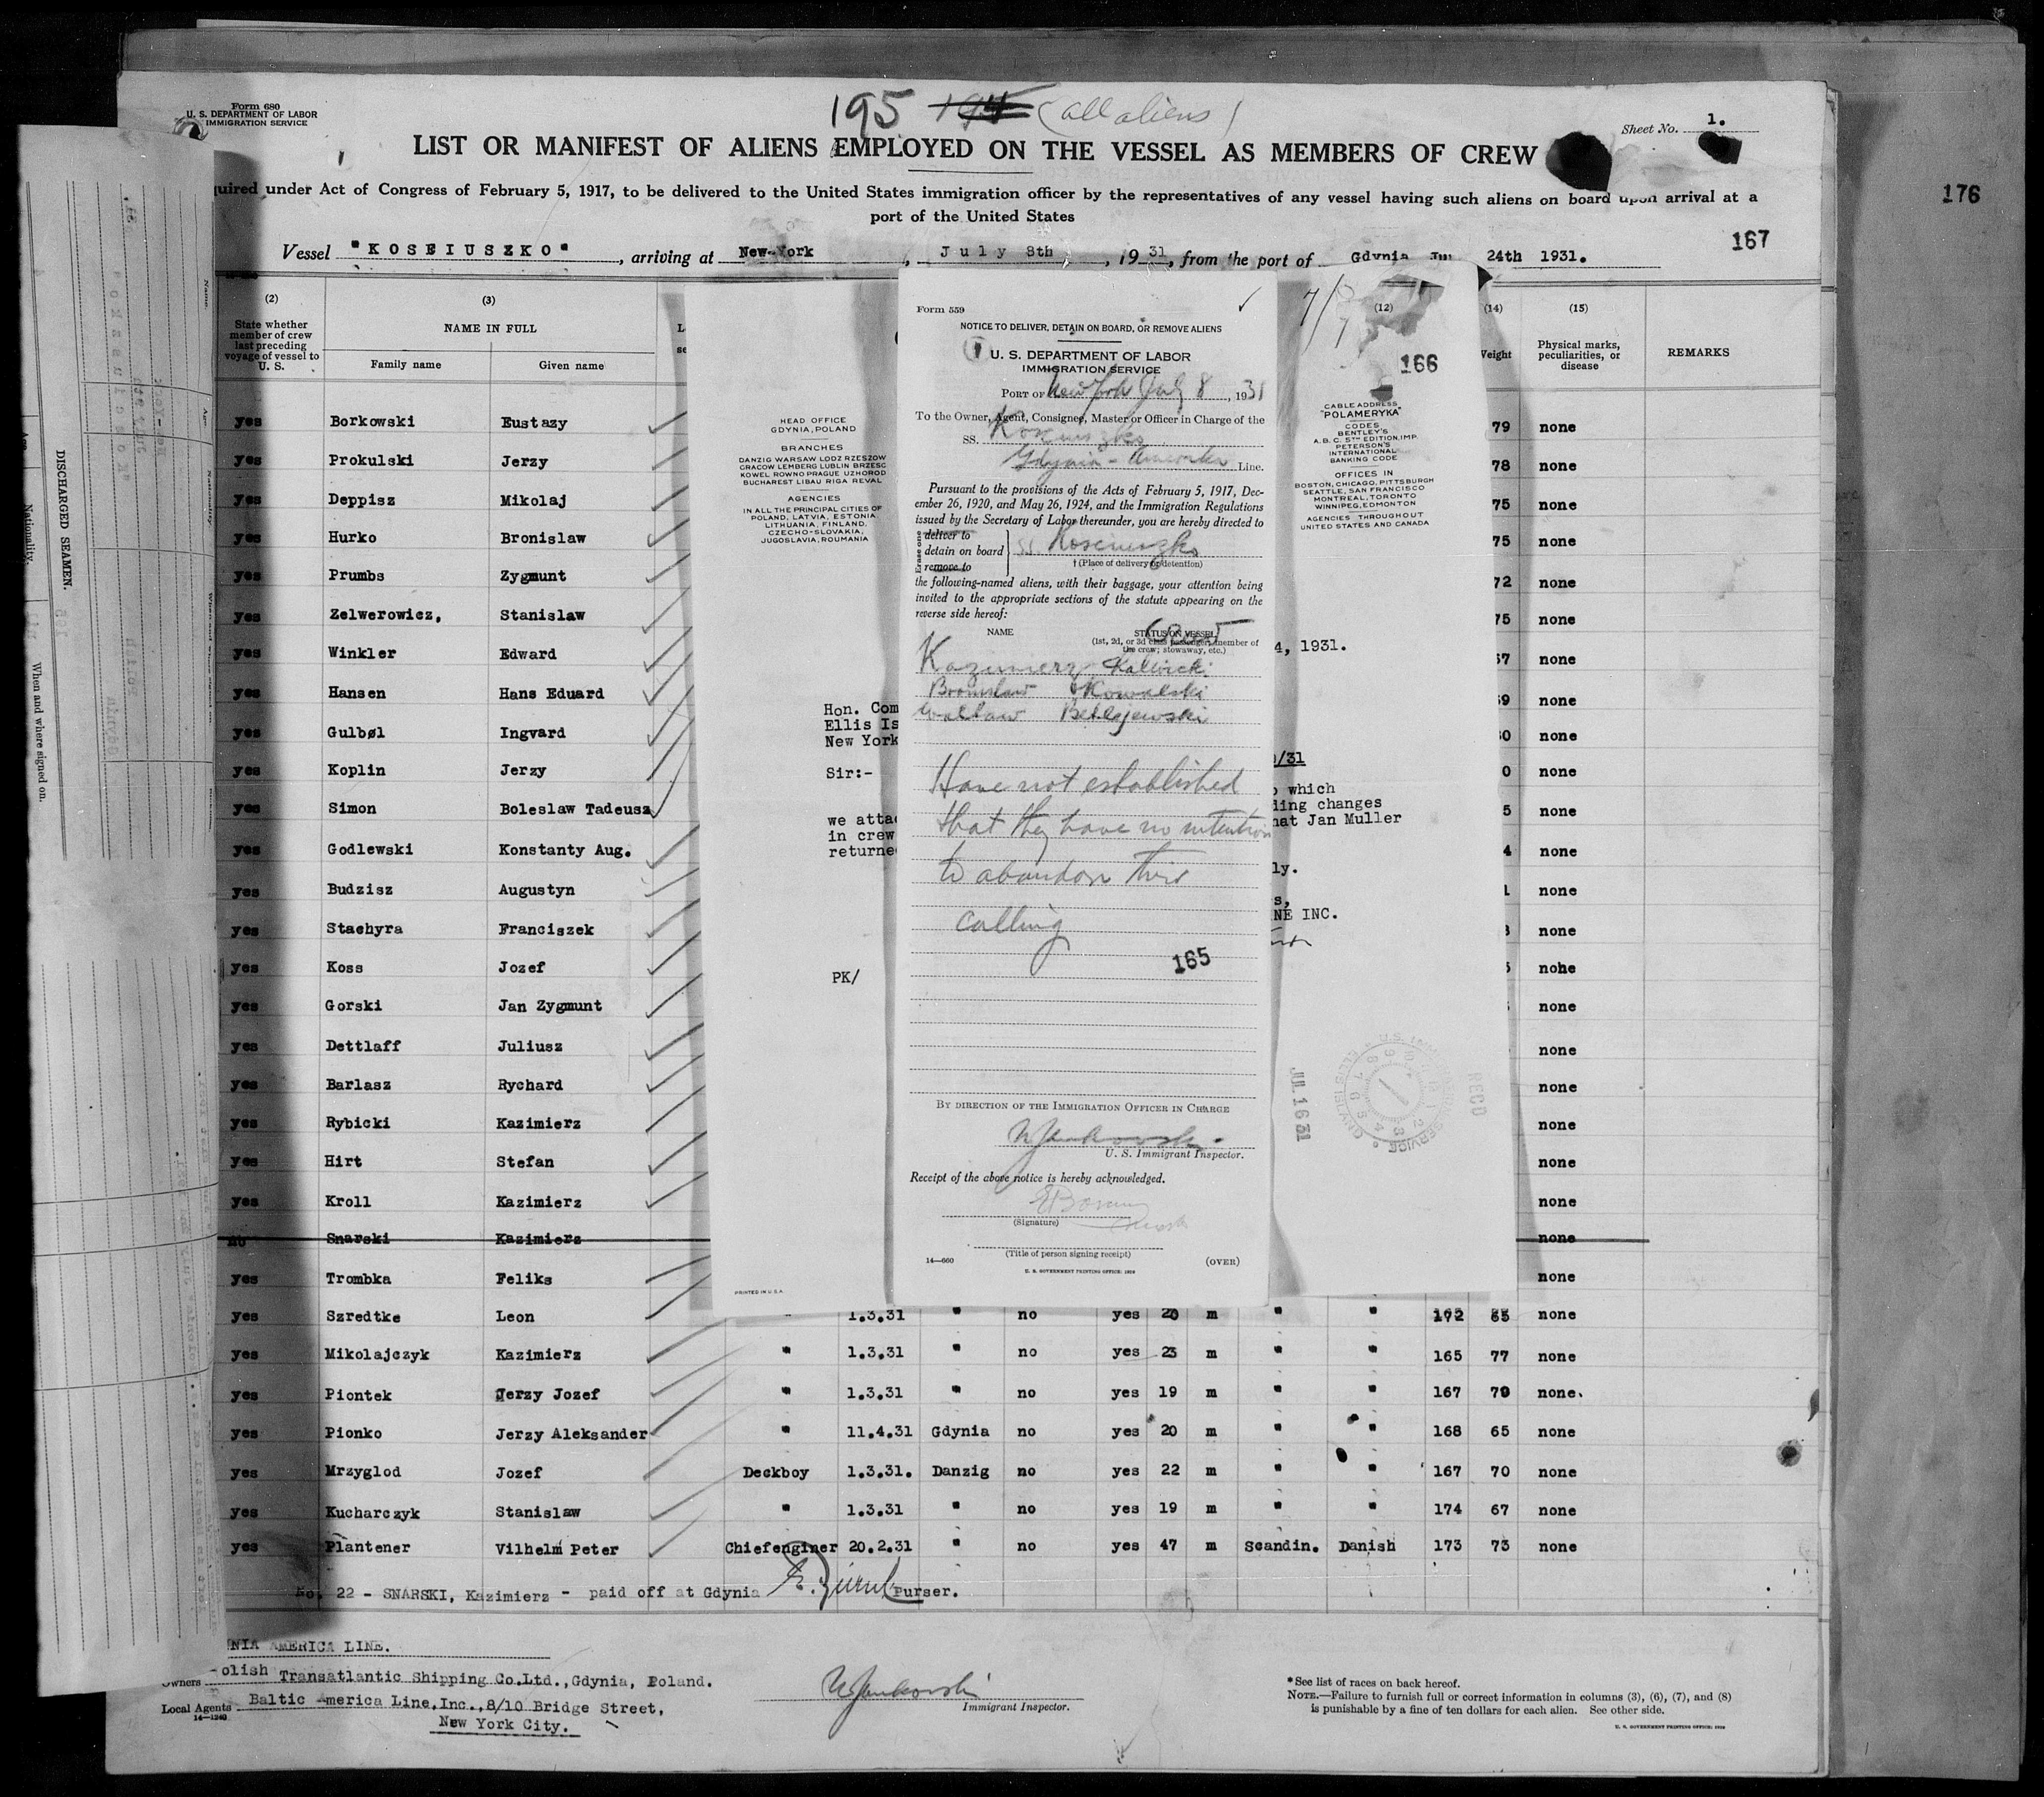 Form 680
U. S. DEPARTMENT OF LABOR
IMMIGRATION SERVICE
195 (all aliens)
Sheet No. 1.
LIST OR MANIFEST OF ALIENS EMPLOYED ON THE VESSEL AS MEMBERS OF CREW
quired under Act of Congress of February 5, 1917, to be delivered to the United States immigration officer by the representatives of any vessel having such aliens on board upon arrival at a
port of the United States
176
167
Vessel "KOSCIUSZKO", arriving at New-York, July 8th, 1931, from the port of Gdynia Ju 24th 1931.
(2) (3) (12) (14) (15)
State whether member of crew last preceding voyage of vessel to U. S.
NAME IN FULL
Family name Given name
Weight
Physical marks, peculiarities, or disease
REMARKS
yes Borkowski Eustazy 79 none
yes Prokulski Jerzy 78 none
yes Deppisz Mikolaj 75 none
yes Hurko Bronislaw 75 none
yes Prumbs Zygmunt 72 none
yes Zelwerowicz, Stanislaw 75 none
yes Winkler Edward 67 none
yes Hansen Hans Eduard 9 none
yes Gulbøl Ingvard 0 none
yes Koplin Jerzy 0 none
yes Simon Boleslaw Tadeusz 5 none
yes Godlewski Konstanty Aug. 4 none
yes Budzisz Augustyn 1 none
yes Stachyra Franciszek none
yes Koss Jozef nohe
yes Gorski Jan Zygmunt none
yes Dettlaff Juliusz none
yes Barlasz Rychard none
yes Rybicki Kazimierz none
yes Hirt Stefan none
yes Kroll Kazimierz none
no Snarski Kazimierz none
yes Trombka Feliks none
yes Szredtke Leon " 1.3.31 " no yes 20 m " " 172 65 none
yes Mikolajczyk Kazimierz " 1.3.31 " no yes 23 m " " 165 77 none
yes Piontek Jerzy Jozef " 1.3.31 " no yes 19 m " " 167 70 none.
yes Pionko Jerzy Aleksander " 11.4.31 Gdynia no yes 20 m " " 168 65 none
yes Mrzyglod Jozef Deckboy 1.3.31. Danzig no yes 22 m " " 167 70 none
yes Kucharczyk Stanislaw " 1.3.31 " no yes 19 m " " 174 67 none
yes Plantener Vilhelm Peter Chiefenginer 20.2.31 " no yes 47 m Scandin. Danish 173 73 none
No. 22 - SNARSKI, Kazimierz - paid off at Gdynia Purser.
NIA AMERICA LINE.
Owners olish Transatlantic Shipping Co.Ltd.,Gdynia, Poland.
Local Agents Baltic America Line,Inc.,8/10 Bridge Street,
14—1240
New York City.
Immigrant Inspector.
*See list of races on back hereof.
NOTE.—Failure to furnish full or correct information in columns (3), (6), (7), and (8)
is punishable by a fine of ten dollars for each alien. See other side.
U. S. GOVERNMENT PRINTING OFFICE: 1929
HEAD OFFICE
GDYNIA, POLAND
BRANCHES
DANZIG WARSAW LODZ RZESZOW
CRACOW LEMBERG LUBLIN BRZESC
KOWEL ROWNO PRAGUE UZHOROD
BUCHAREST LIBAU RIGA REVAL
AGENCIES
IN ALL THE PRINCIPAL CITIES OF
POLAND, LATVIA, ESTONIA,
LITHUANIA, FINLAND,
CZECHO-SLOVAKIA,
JUGOSLAVIA, ROUMANIA
Hon. Com
Ellis Is
New York
Sir:-
we atta
in crew
returne
PK/
PRINTED IN U.S.A.
166
CABLE ADDRESS
"POLAMERYKA"
CODES
BENTLEY'S
A.B.C. 5TH EDITION.IMP.
PETERSON'S
INTERNATIONAL
BANKING CODE
OFFICES IN
BOSTON, CHICAGO, PITTSBURGH
SEATTLE, SAN FRANCISCO
MONTREAL, TORONTO
WINNIPEG, EDMONTON
AGENCIES THROUGHOUT
UNITED STATES AND CANADA
4, 1931.
/31
which
ding changes
hat Jan Muller
ly.
s,
NE INC.
JUL 16 31
RECD
Form 559
NOTICE TO DELIVER, DETAIN ON BOARD, OR REMOVE ALIENS
U. S. DEPARTMENT OF LABOR
IMMIGRATION SERVICE
PORT OF New York July 8, 1931
To the Owner, Agent, Consignee, Master or Officer in Charge of the
SS. Kosciuszko
Gdynia - America Line.
Pursuant to the provisions of the Acts of February 5, 1917, Dec-
ember 26, 1920, and May 26, 1924, and the Immigration Regulations
issued by the Secretary of Labor thereunder, you are hereby directed to
Erase one
deliver to
detain on board SS Kosciuszko
remove to
† (Place of delivery or detention)
the following-named aliens, with their baggage, your attention being
invited to the appropriate sections of the statute appearing on the
reverse side hereof:
NAME STATUS ON VESSEL
(1st, 2d, or 3d class passenger; member of
the crew; stowaway, etc.)
Crew
Kazimierz Kalwicki
Bronislaw Kowalski
Waclaw Betlejewski
Have not established
that they have no intention
to abandon their
calling
165
BY DIRECTION OF THE IMMIGRATION OFFICER IN CHARGE
U. S. Immigrant Inspector.
Receipt of the above notice is hereby acknowledged.
(Signature)
(Title of person signing receipt)
14—660
(OVER)
U. S. GOVERNMENT PRINTING OFFICE: 1929
DISCHARGED SEAMEN.
Name.
Age.
Nationality.
When and where signed on.